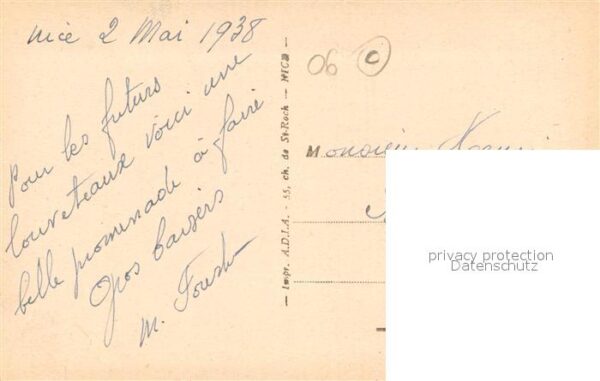 Nice 2 Mai 1938
Pour les futurs
louveteaux voici une
belle promenade à faire
Gros baisers
M.
Impr. A.D.I.A. - 55, ch. de St-Roch - NICE
06 C
Monsieur
privacy protection
Datenschutz